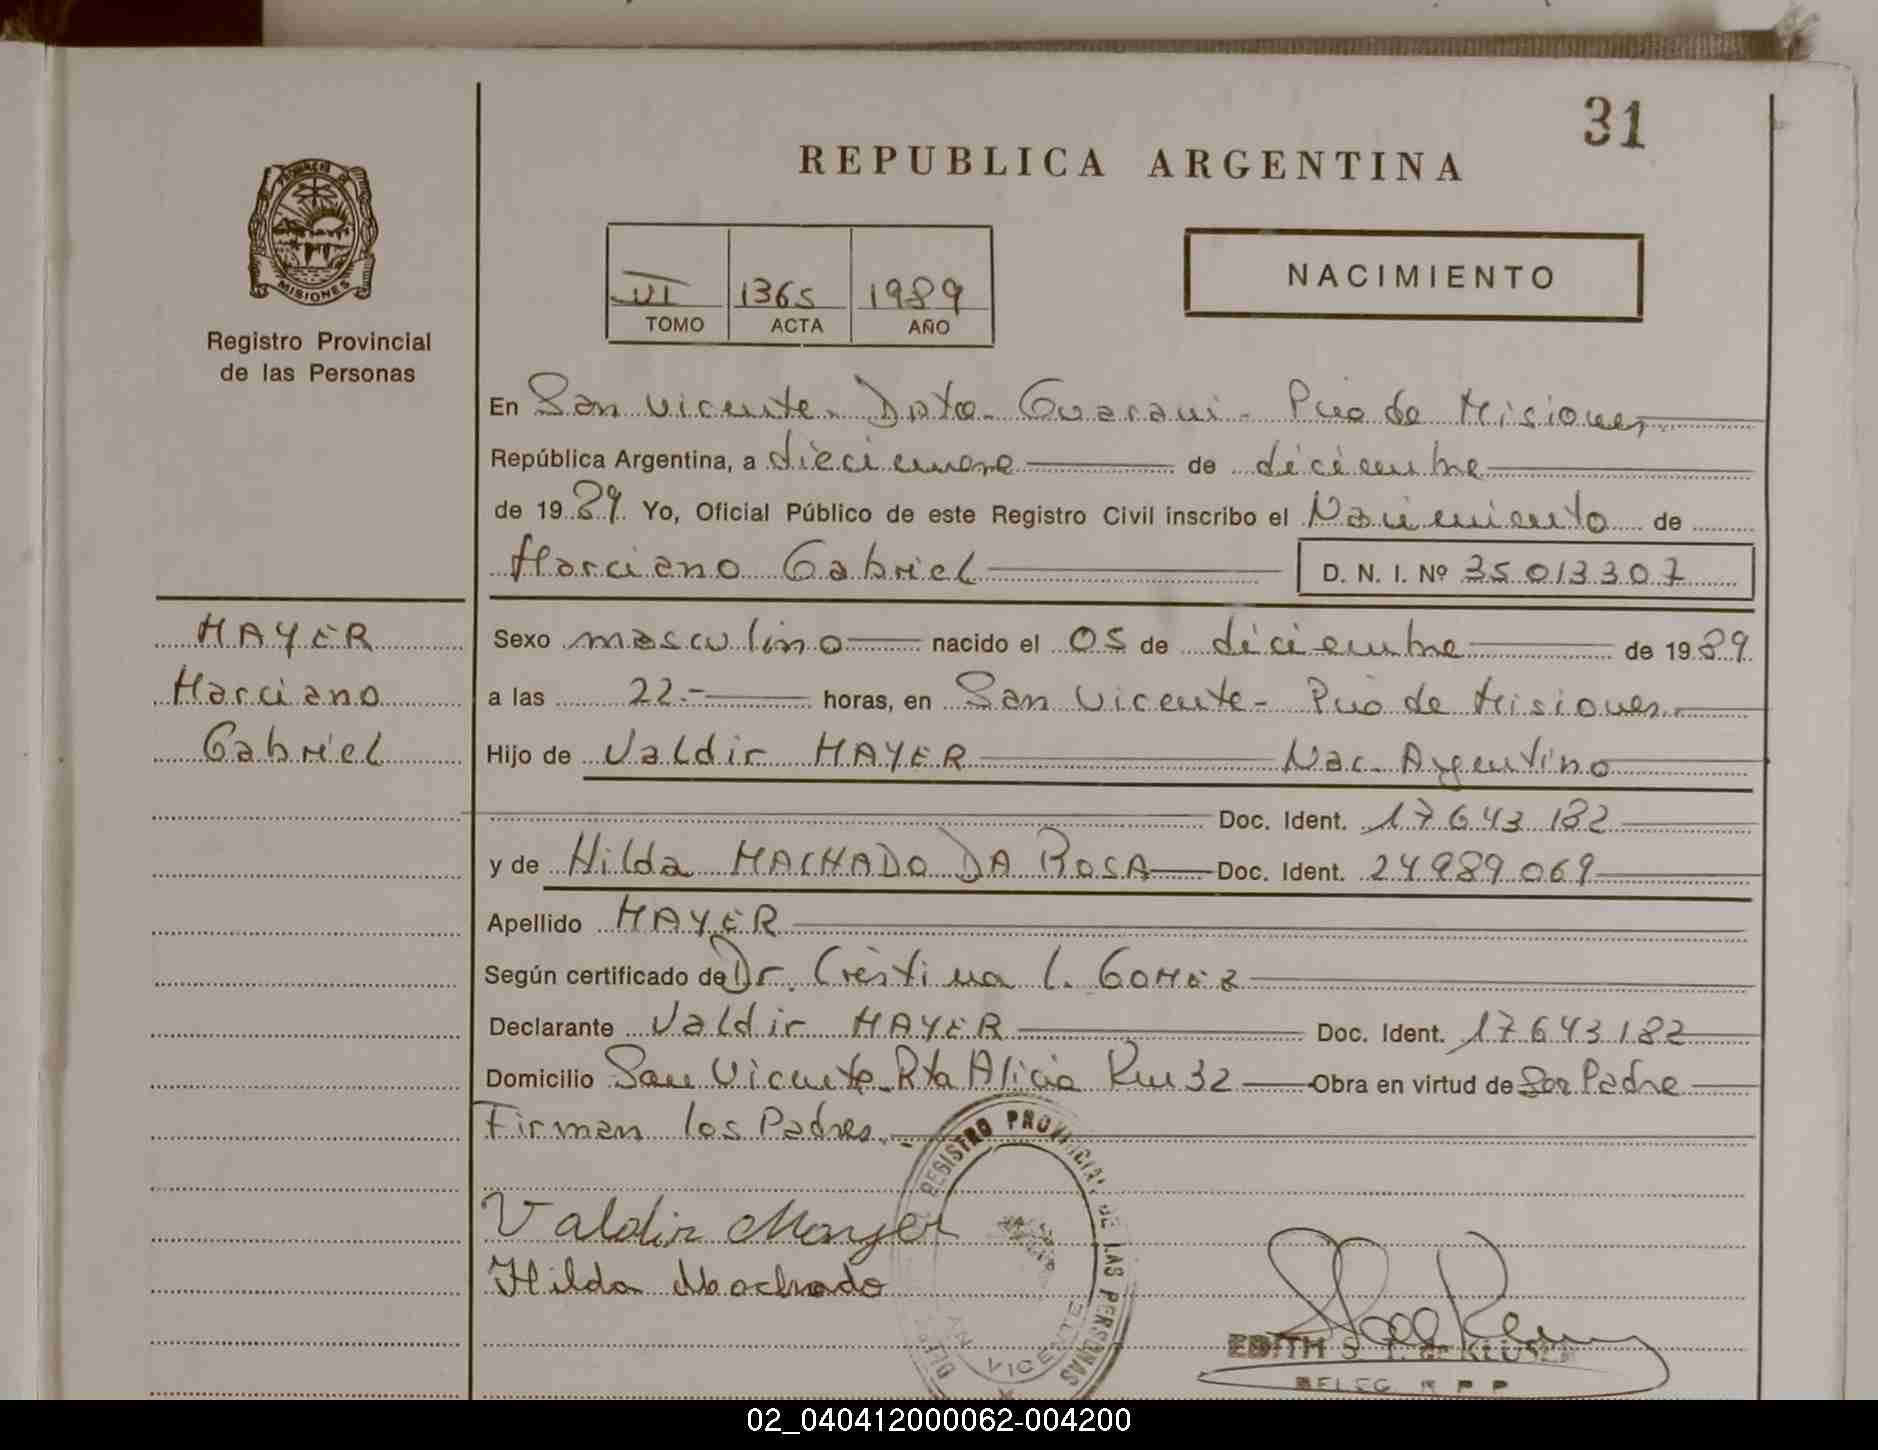 31
REPUBLICA ARGENTINA
MISIONES
Registro Provincial
de las Personas
VI 1365 1989
TOMO ACTA AÑO
NACIMIENTO
En San Vicente - Dpto - Guarani - Pcia de Misiones
República Argentina, a diecinueve de diciembre
de 1989 Yo, Oficial Público de este Registro Civil inscribo el Nacimiento de
Marciano Gabriel D. N. I. Nº 35013307
MAYER
Marciano
Gabriel
Sexo masculino nacido el 05 de diciembre de 1989
a las 22.- horas, en San Vicente - Pcia de Misiones.
Hijo de Valdir MAYER Nac. Argentino
Doc. Ident. 17643182
y de Hilda MACHADO DA ROSA Doc. Ident. 24989069
Apellido MAYER
Según certificado de Dr. Cristina C. GOMEZ
Declarante Valdir MAYER Doc. Ident. 17643182
Domicilio San Vicente - Rta Alicia Km 32 Obra en virtud de Ser Padre
Firman los Padres.
REGISTRO PROVINCIAL DE LAS PERSONAS
VICENTE
Valdir Mayer
Hilda Machado
EDITH S.
DELEG. R P P
02_040412000062-004200